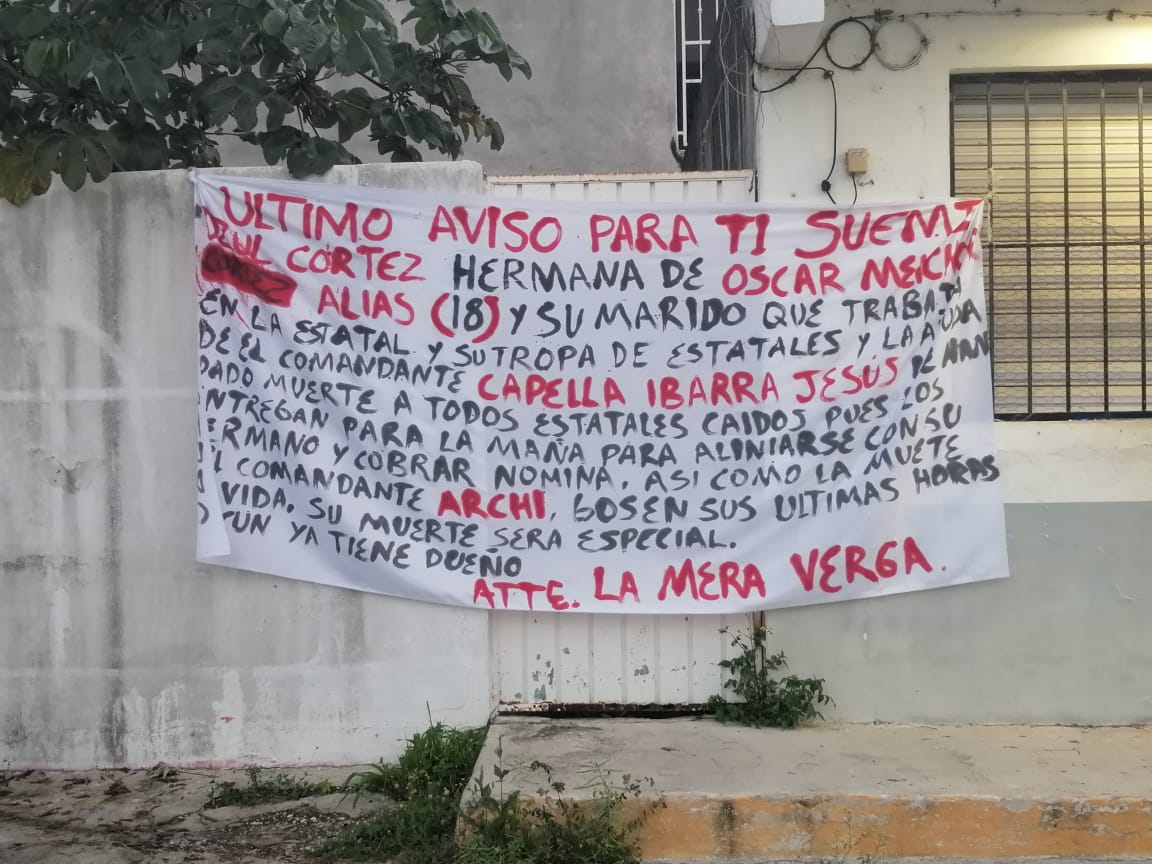 ULTIMO AVISO PARA TI SUEMI
CORTEZ HERMANA DE OSCAR
ALIAS (18) Y SU MARIDO QUE TRABAJA
EN LA ESTATAL Y SU TROPA DE ESTATALES Y LA AYUDA
DE EL COMANDANTE CAPELLA IBARRA JESÚS DE HAN
DADO MUERTE A TODOS ESTATALES CAIDOS PUES LOS
NTREGAN PARA LA MAÑA PARA ALINIARSE CON SU
ERMANO Y COBRAR NOMINA. ASI COMO LA MUETE
L COMANDANTE ARCHI, GOSEN SUS ULTIMAS HORAS
VIDA. SU MUERTE SERA ESPECIAL.
YA TIENE DUEÑO
ATTE. LA MERA VERGA.